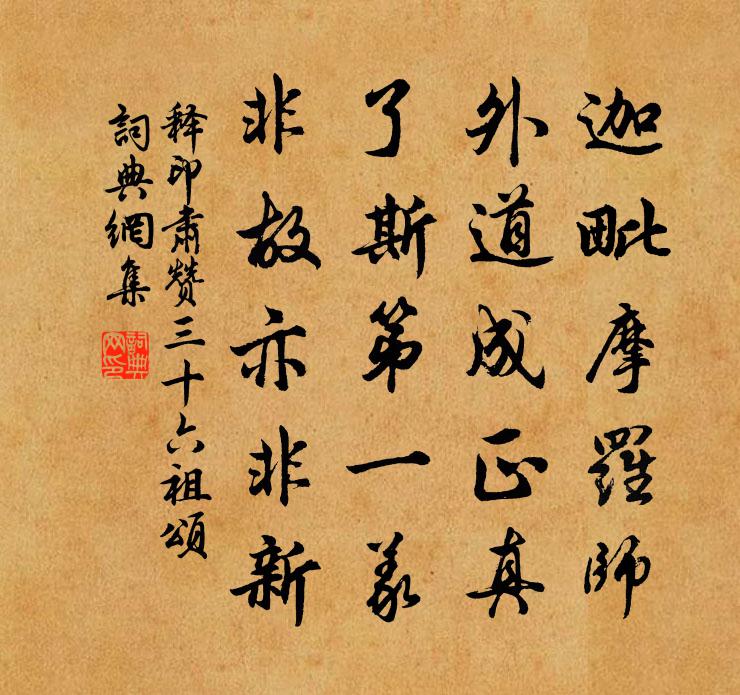 迦毗摩羅師
外道成正真
了斯第一義
非故亦非新
释印肃赞三十六祖頌
詞典網集
詞典网印